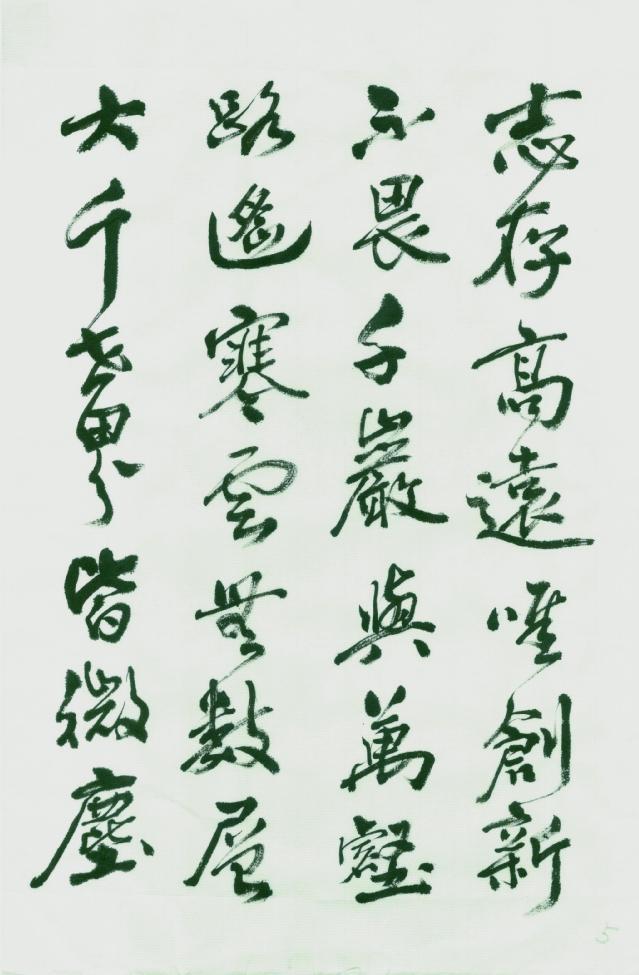 志存高遠唯創新
不畏千巖與萬壑
路遙寒雲無數層
大千世界皆微塵
5